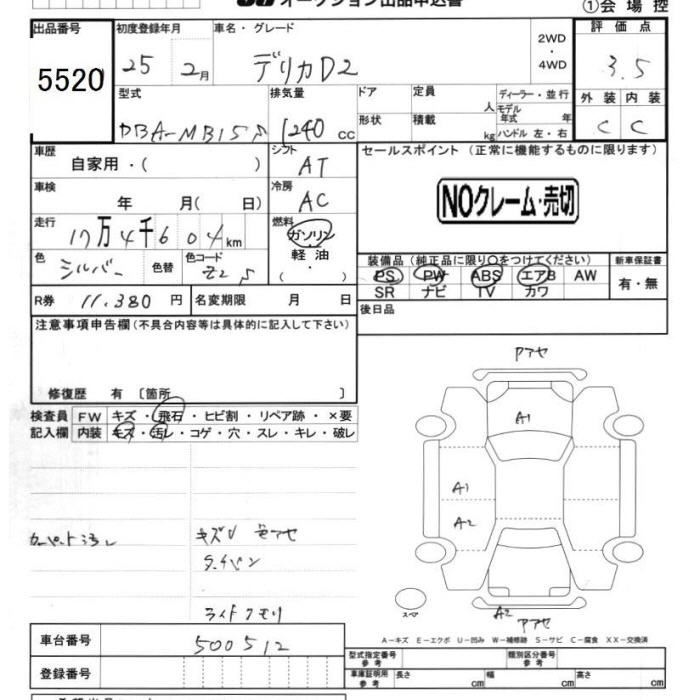 オークション出品申込書
①会場控
出品番号 5520
初度登録年月 25 2月
車名・グレード デリカD2
2WD・4WD
評価点 3.5
外装 C 内装 C
型式 DBA-MB15S
排気量 1240 CC
ドア 形状
定員 人 積載 kg
ディーラー・並行
モデル年式 年
ハンドル 左・右
車歴 自家用・( )
シフト AT
車検 年 月( 日)
冷房 AC
走行 17万4千604km
燃料 ガソリン・軽油・( )
色 シルバー 色替 色コード Z2S
R券 11,380 円 名変期限 月 日
セールスポイント(正常に機能するものに限ります)
NOクレーム・売切
装備品(純正品に限り○をつけてください)
PS PW ABS エアB AW
SR ナビ TV カワ
新車保証書 有・無
後日品
注意事項申告欄(不具合内容等は具体的に記入して下さい)
修復歴 有〔箇所 〕
検査員記入欄
FW キズ・飛石・ヒビ割・リペア跡・×要
内装 キズ・汚レ・コゲ・穴・スレ・キレ・破レ
カーペット汚レ
キズU 色アセ
ライトクモリ
アセ
A1
A1
A2
スペア
A2
アセ
A−キズ E−エクボ U−凹み W−補修跡 S−サビ C−腐食 XX−交換済
車台番号 500512
登録番号
型式指定番号 参考 類別区分番号 参考
車庫証明用 参考 長さ cm 幅 cm 高さ cm